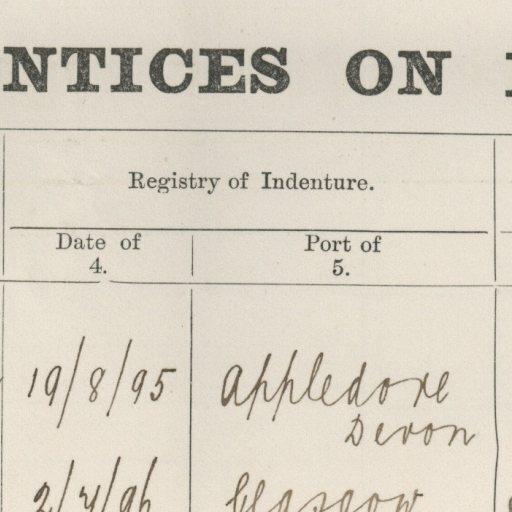 NTICES ON
Registry of Indenture.
Date of
4.
Port of
5.
19/8/95
Appledore
Devon
Glasgow